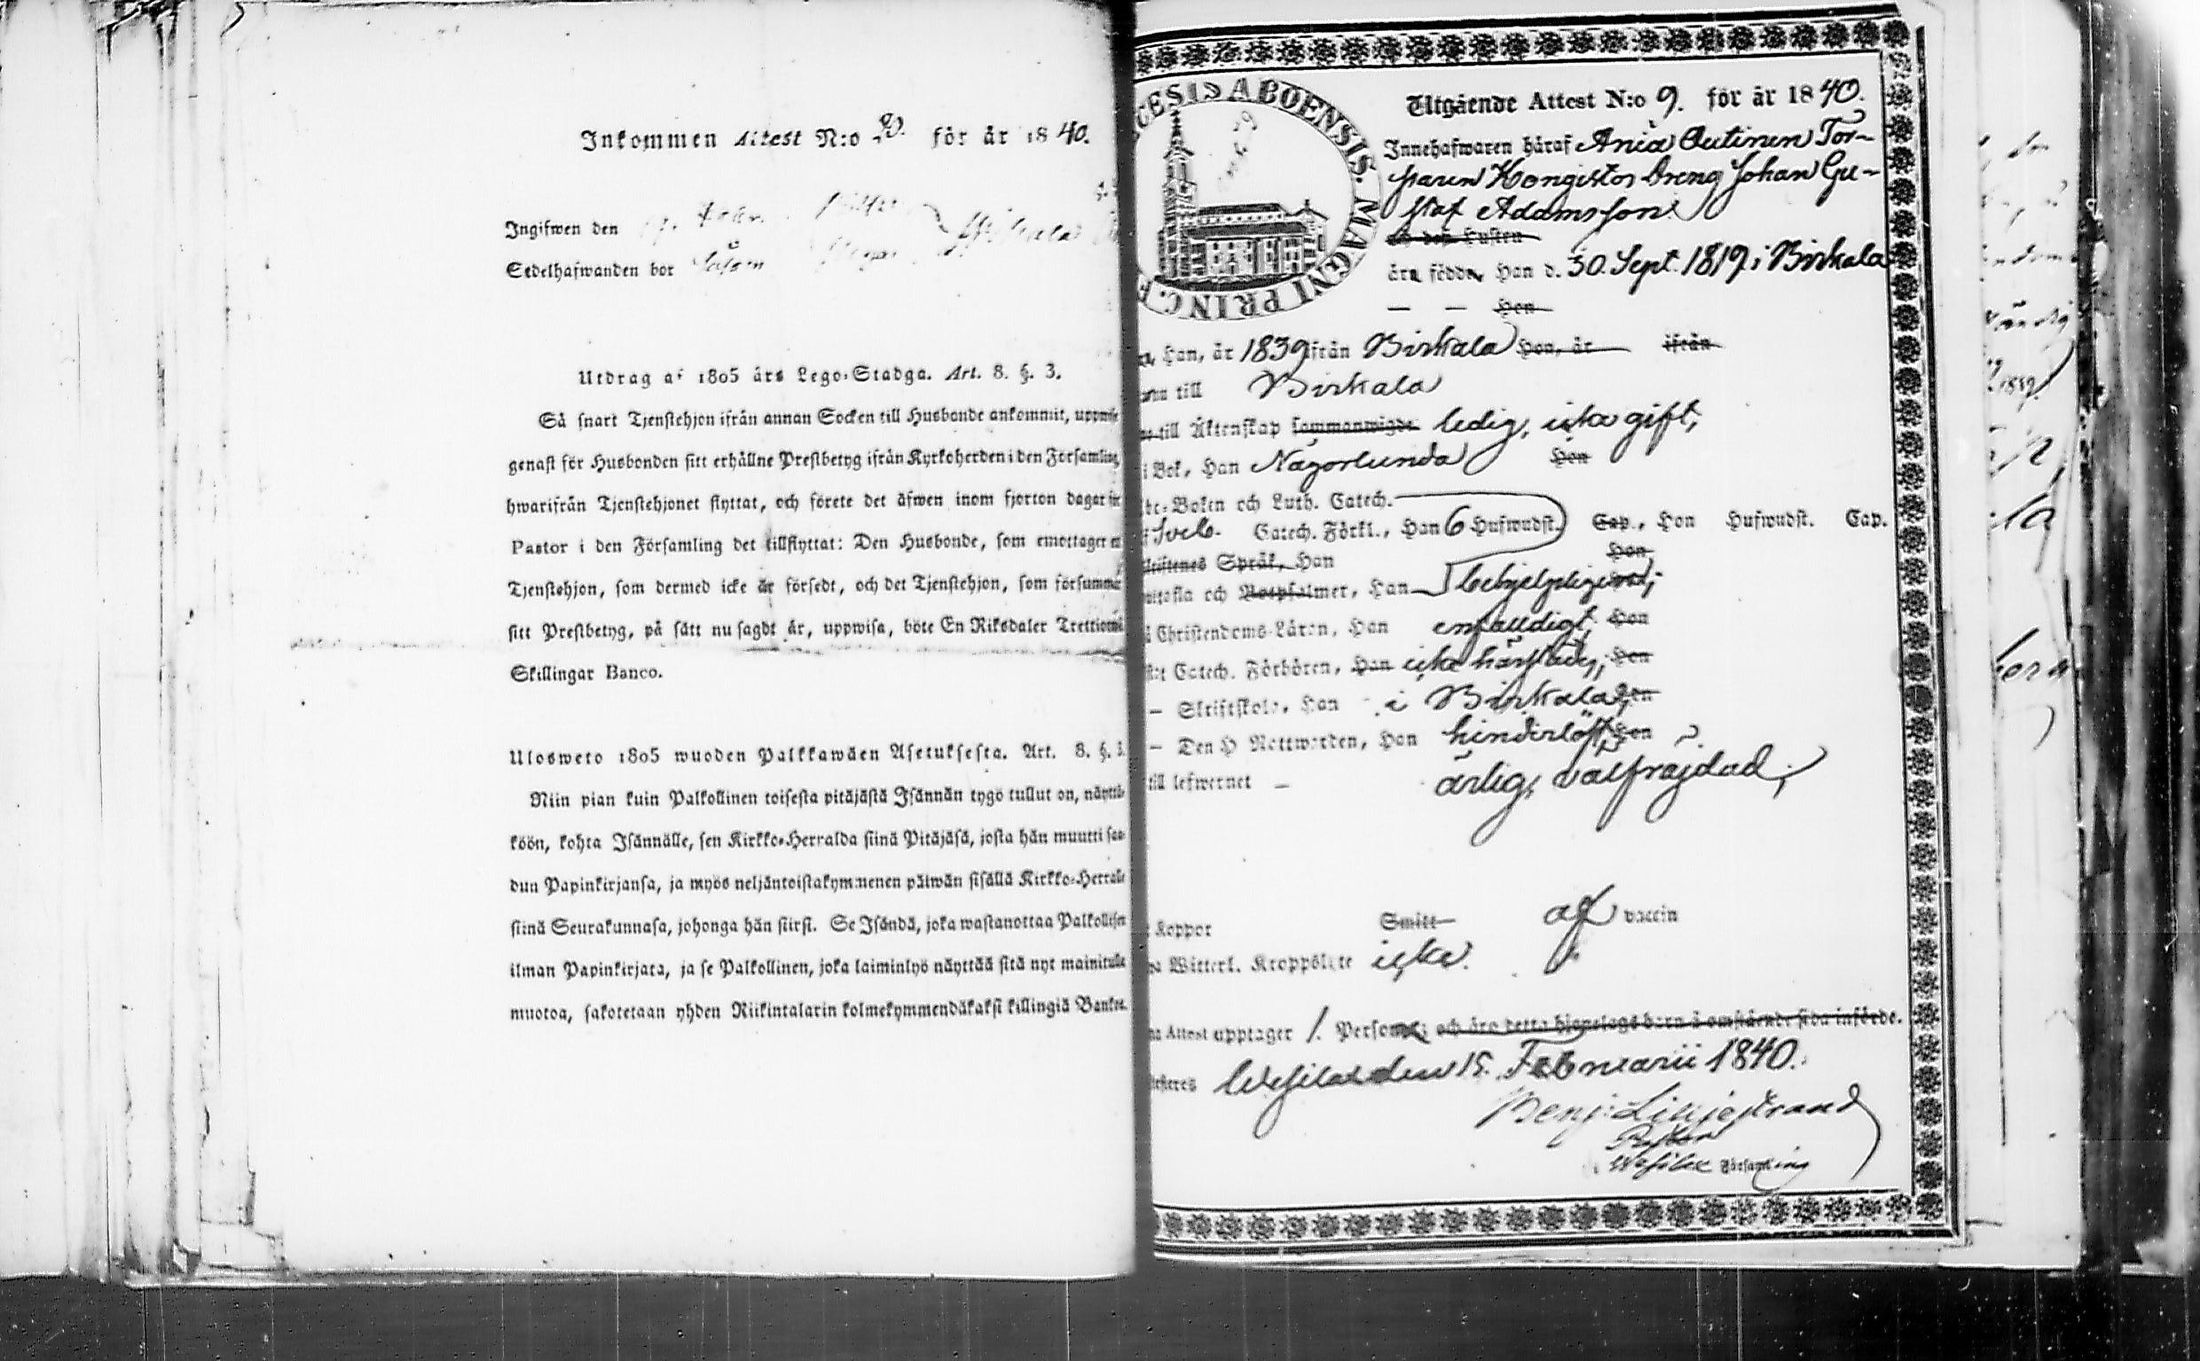 Inkommen Attest N:o för år 1840.
Ingifwen den
Sedelhafwanden bor
Utdrag af 1805 års Lego-Stadga. Art. 8. §. 3.
Så snart Tjenstehjon ifrån annan Socken till Husbonde ankommit, uppwise
genast för Husbonden sitt erhållne Prestbetyg ifrån Kyrkoherden i den Församling,
hwarifrån Tjenstehjonet flyttat, och förete det äfwen inom fjorton dagar för
Pastor i den Församling det tillflyttat: Den Husbonde, som emottager et
Tjenstehjon, som dermed icke är försedt, och det Tjenstehjon, som försummar
sitt Prestbetyg, på sätt nu sagdt är, uppwisa, böte En Riksdaler Trettiotwå
Skillingar Banco.
Ulosweto 1805 wuoden Palkkawäen Asetuksesta. Art. 8. §. 3.
Niin pian kuin Palkollinen toisesta pitäjästä Isännän tygö tullut on, näyttä-
köön, kohta Isännälle, sen Kirkko-Herralda siinä Pitäjäsä, josta hän muutti saa-
dun Papinkirjansa, ja myös neljäntoistakymmenen päiwän sisällä Kirkko-Herralle
siinä Seurakunnasa, johonga hän siirsi. Se Isändä, joka wastanottaa Palkollisen
ilman Papinkirjata, ja se Palkollinen, joka laiminlyö näyttää sitä nyt mainitulla
muotoa, sakotetaan yhden Riikintalarin kolmekymmendäkaksi killingiä Bankos.
CESIS ABOENSIS. MAGNI PRINC. F
Utgående Attest N:o 9. för år 1840.
Innehafwaren häraf Ania Outinen Tor-
paren Kongistos Dreng Johan Gu-
staf Adamsson
och dess Hustru
äro födde, Han d. 30. Sept. 1819 i Birkala
— — Hon
Han, år 1839 från Birkala Hon, år ifrån
till Birkala
till Äktenskap sammanwigde ledig, icke gift,
i Bok, Han Någorlunda Hon
Boken och Luth. Catech.
Sveb. Catech. Förkl., Han 6 Hufwudst. Cap., Hon Hufwudst. Cap.
Skriftenes Språk, Han Hon
och Botpsalmer, Han behjelpligen;
Christendoms-Läran, Han enfalldigt Hon
Catech. Förhören, Han icke härstädes; Hon
— Skriftskola, Han i Birkala, Hon
— Den H Nattwarden, Han hinderlöst, Hon
till lefwernet — ärlig, välfräjdad;
Koppor Smitt af vaccin
Witterl. Kroppslyte icke.
Attest upptager 1. Person; och äro detta hjonelags barn å omstående sida införde.
Wesilax den 15. Februarii 1840.
Benj: Liljestrand
Pastor
i Wesilax Församling